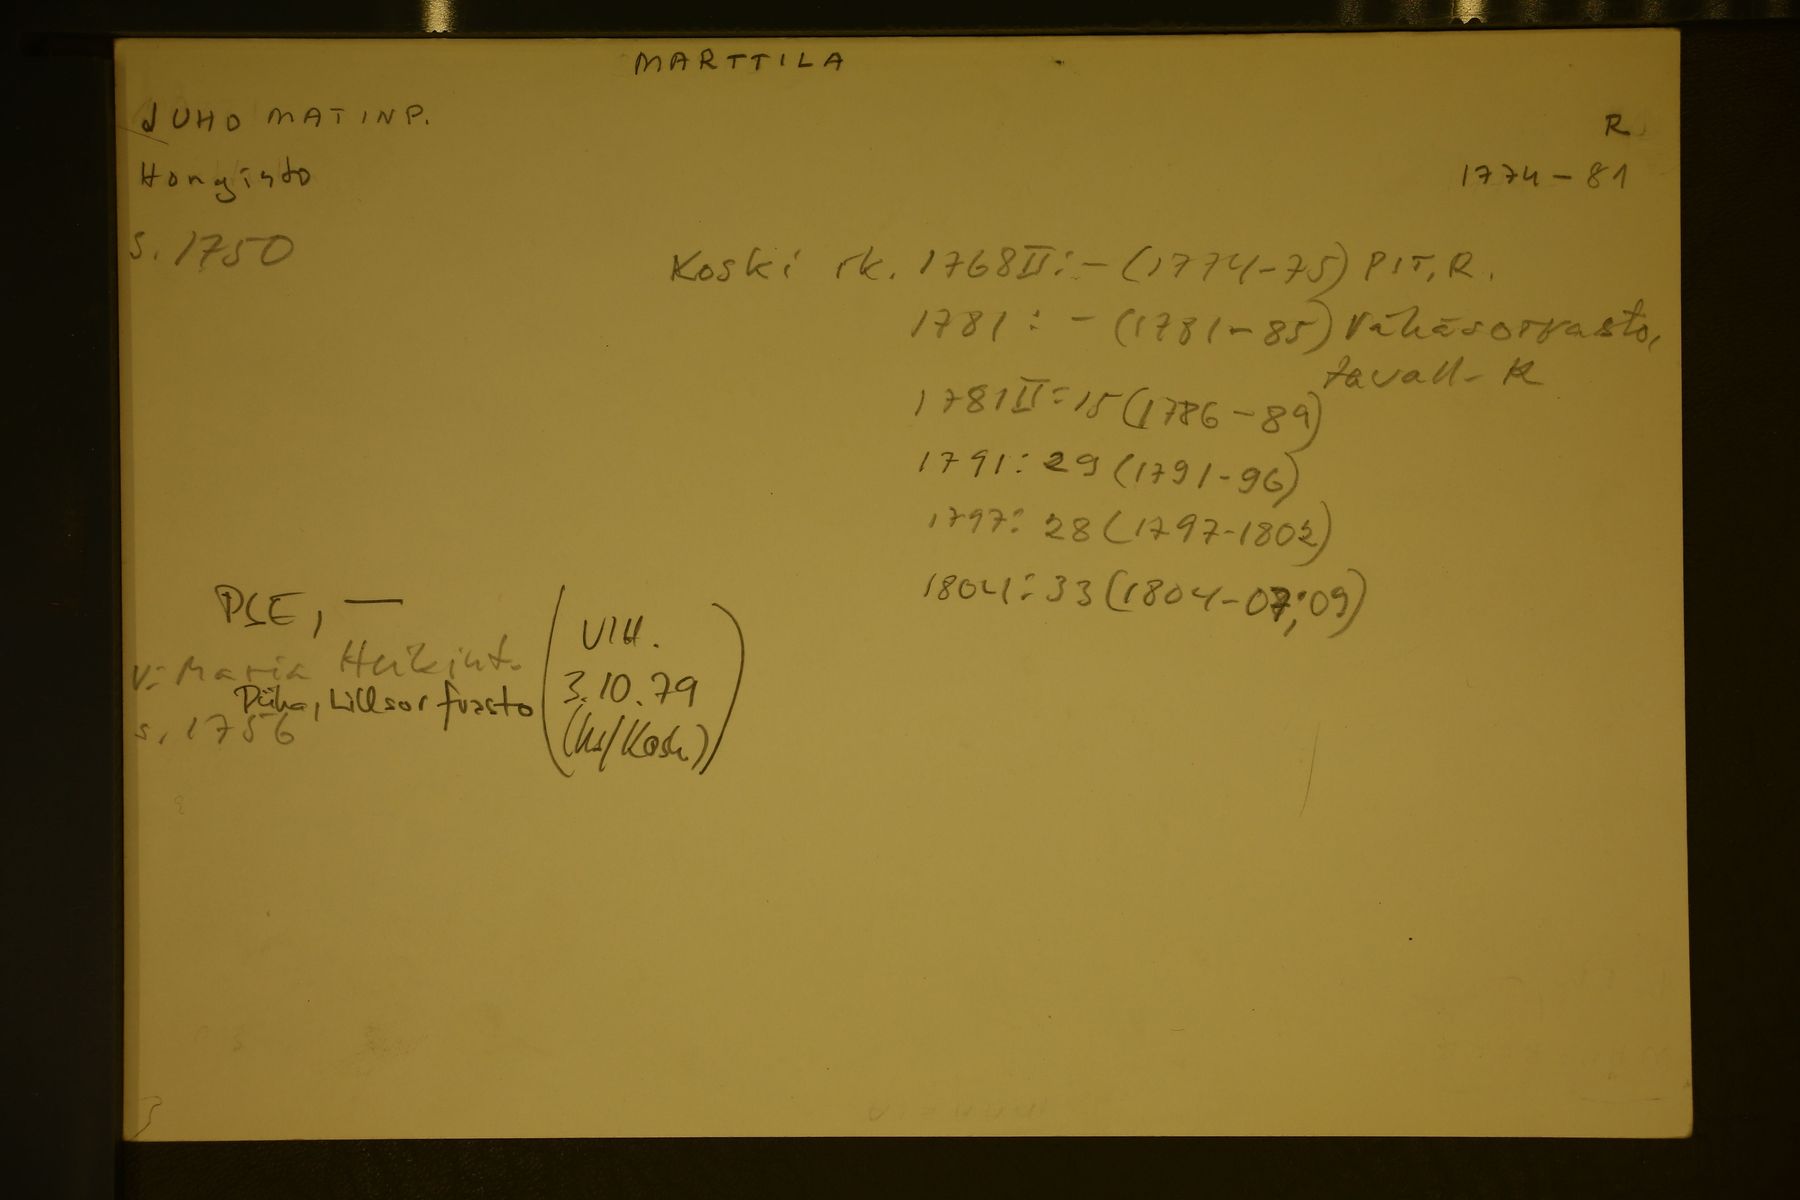 MARTTILA
JUHO MATINP.
R
Hongisto
1774-81
s. 1750
Koski rk. 1768 II: - (1774-75) PIT, R.
1781: - (1781-85) Vähäsorvasto,
tavall. R
1781 II: 15 (1786-89)
1791: 29 (1791-96)
1797: 28 (1797-1802)
1804: 33 (1804-07; 09)
PSE, —
V: Maria Heikint.
Piika, Lillsorfvasto
s. 1756
(VIH.
3.10.79
(hs/Kosk))